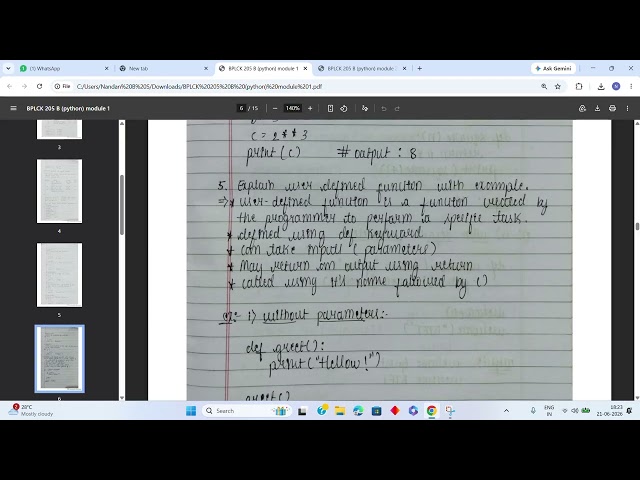 (1) WhatsApp
New tab
BPLCK 205 B (python) module 1
BPLCK 205 B (python) module
Ask Gemini
File
C:/Users/Nandan%20B%20S/Downloads/BPLCK%20205%20B%20(python)%20module%201.pdf
BPLCK 205 B (python) module 1
6 / 15
140%
3
c = 2**3
print(c) # output : 8
5. Explain user defined function with example.
⇒ * user-defined function is a function created by
the programmer to perform a specific task.
* defined using def keyword
* can take inputs (parameters)
* May return an output using return
* called using it's name followed by ()
ex:- 1) without parameters:-
def greet():
print("Hellow!")
greet()
5
6
28°C
Mostly cloudy
Search
ENG
IN
18:23
21-06-2026